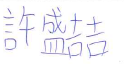 許盛喆